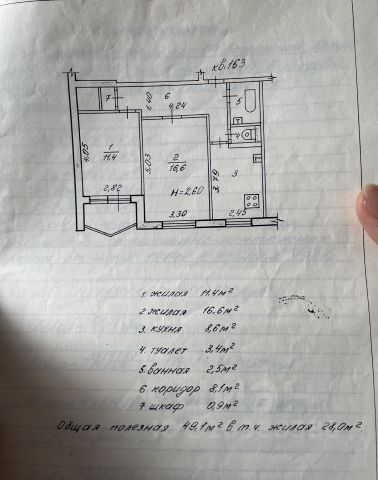 кв.163
7
6
1.40
4.24
5
4
1
11.4
4.05
2.82
2
16,6
5.03
H=2,60
3.30
3
3.79
2.45
1 жилая 11.4м²
2 жилая 16.6м²
3. кухня 8,6м²
4. туалет 3,4м²
5. ванная 2,5м²
6. коридор 8,1м²
7 шкаф 0,9м²
Общая полезная 49,1м² в т.ч. жилая 28,0м²